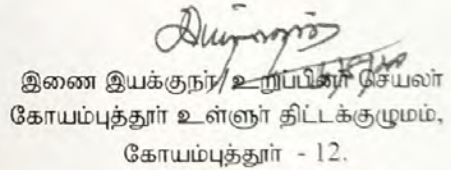 இணை இயக்குநர்/ உறுப்பினர் செயலர்
கோயம்புத்தூர் உள்ளுர் திட்டக்குழுமம்,
கோயம்புத்தூர் - 12.